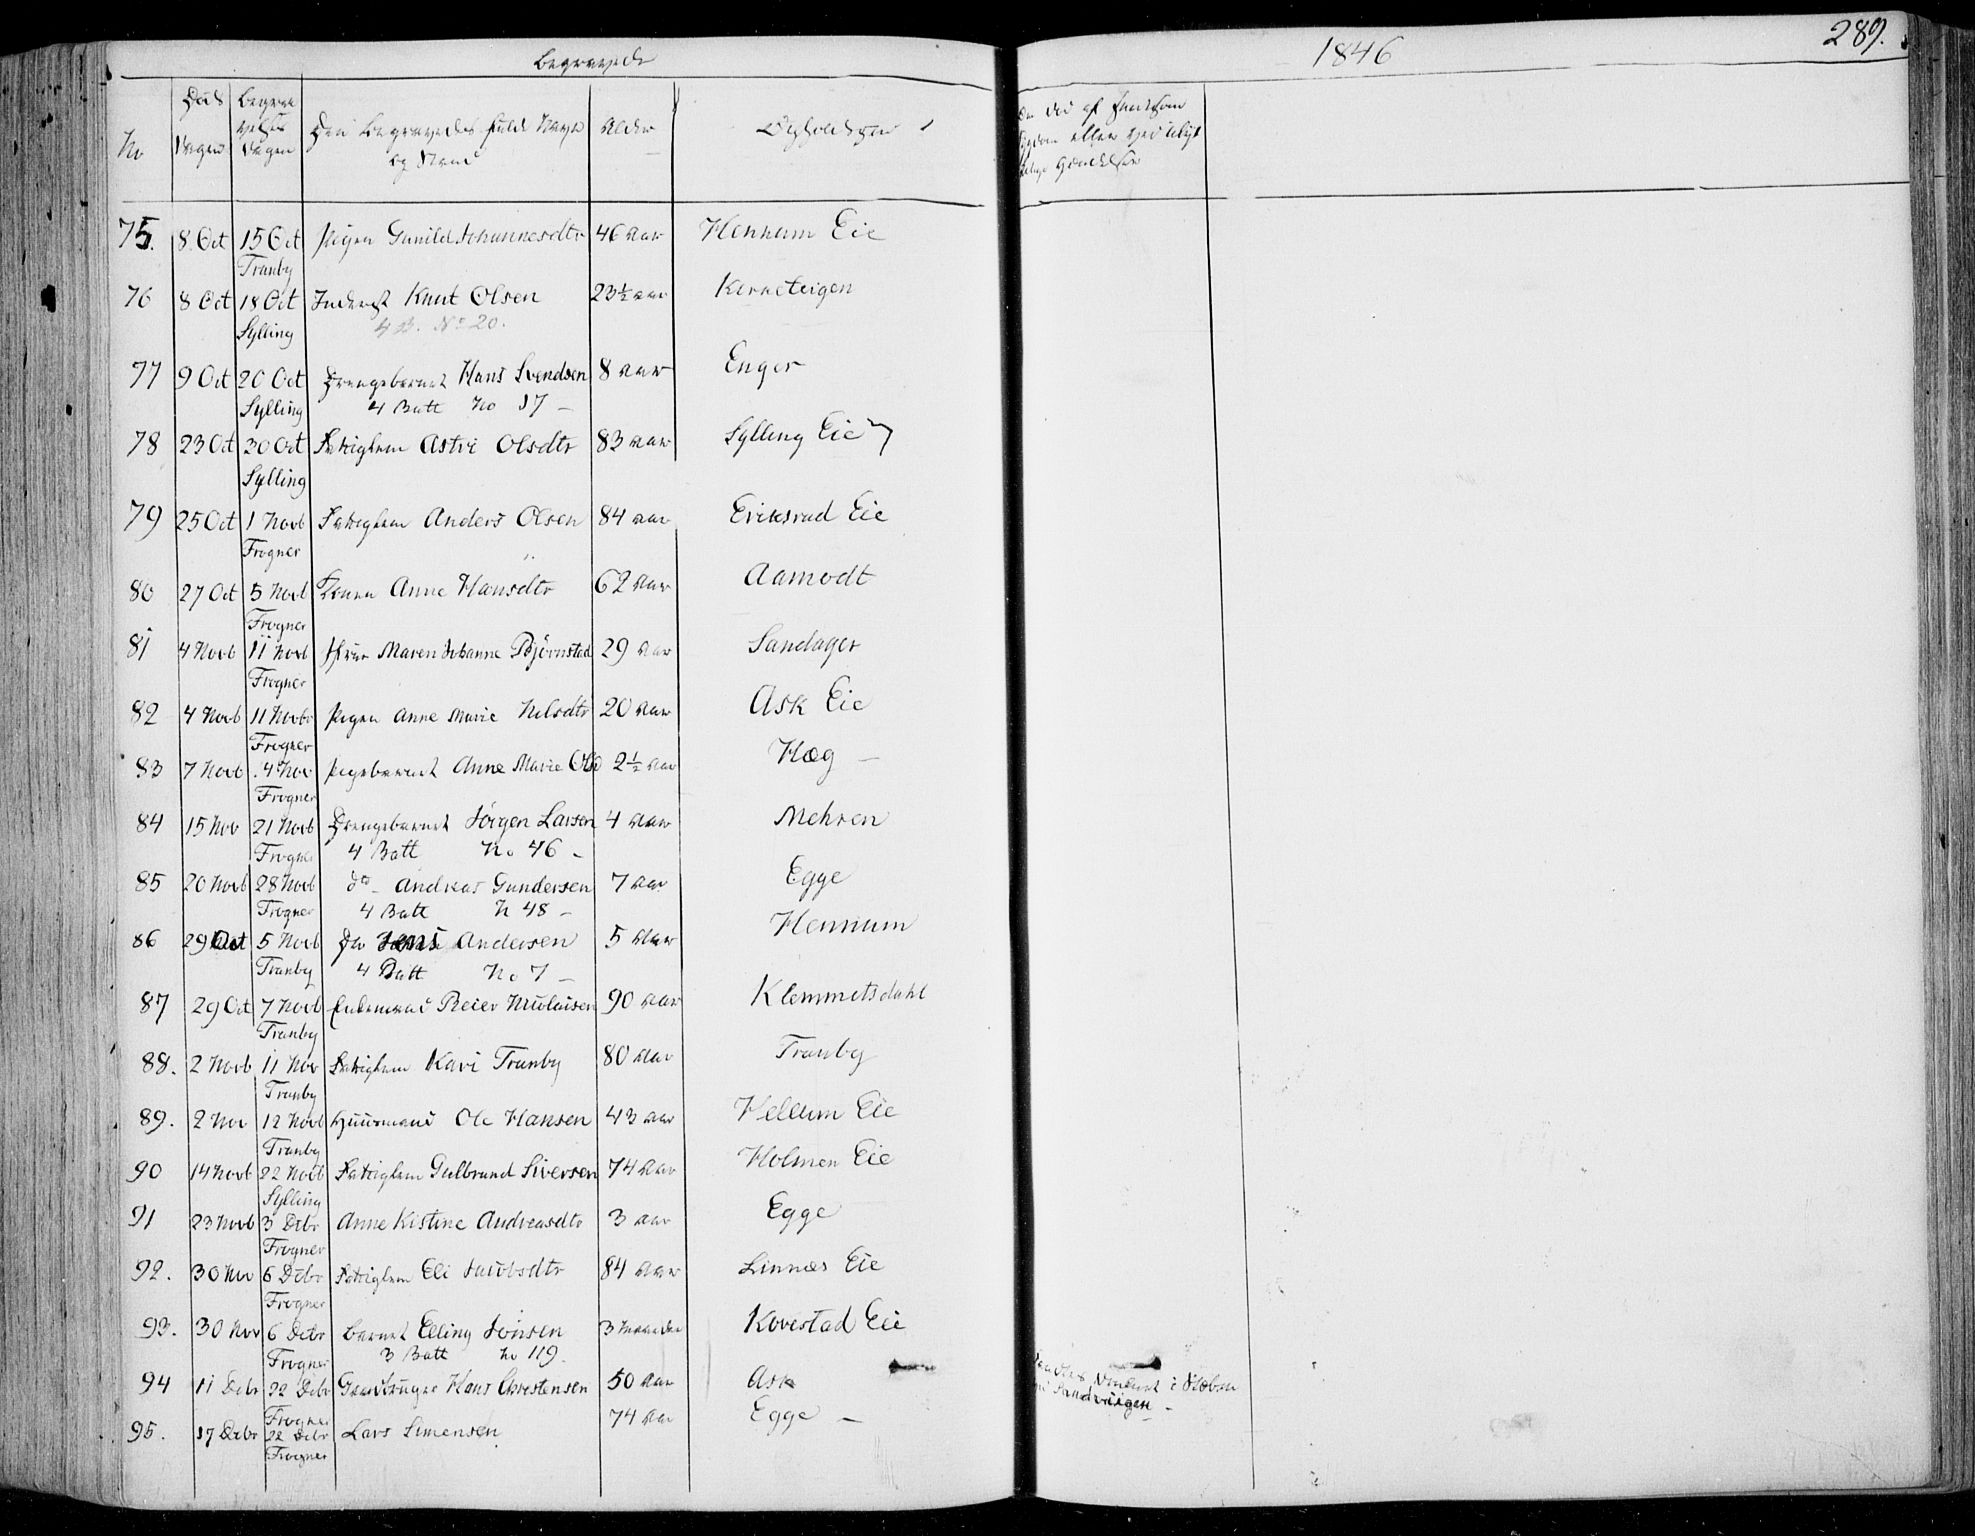 Begravede
1846
289.
No
Døds Dagen
Begravelses Dagen
Den Begravedes fulde Navn og Stand
Alder
Opholdsten
75. 8. Oct 15 Oct Pigen Gunild Johannesdtr 46 Aar Hennum Eie
Tranby
76 8 Oct 18 Oct Inderst Knut Olsen 23½ Aar Kerneteigen
Sylling 4 B. No 20.
77 9 Oct 20 Oct Drengebarnet Hans Svendsen 8 Aar Enger
Sylling 4 Batt No 17 –
78 23 Oct 30 Oct Fattiglem Astri Olsdtr 83 Aar Sylling Eie
Sylling
79 25 Oct 1 Novb Fattiglem Anders Olsen 84 Aar Eriksrud Eie
Frogner
80 27 Oct 5 Novb Konen Anne Hansdtr 62 Aar Aamodt
Frogner
81 4 Novb 11 Novb Frue Maren Johanne Bjørnstad 29 Aar Sandager
Frogner
82 4 Novb 11 Novbr Pigen Anne Marie Nilsdtr 20 Aar Ask Eie
Frogner
83 7 Novb 14 Nov Pigebarnet Anne Marie Olsd 2½ Aar Hæg –
Frogner
84 15 Nov 21 Novb Drengebarnet Jörgen Larsen 4 Aar Mehren
Frogner 4 Batt No 46 –
85 20 Novb 28 Novb do – Andreas Gundersen 7 Aar Egge
Frogner 4 Batt N 48 –
86 29 Oct 5 Novb Do Jens Andersen 5 Aar Hennum
Tranby 4 Batt No 7 –
87 29 Oct 7 Novb Enkemand Reier Nicolaisen 90 Aar Klemmetsdahl
Tranby
88. 2 Novb 11 Nov Fattiglem Kari Tranby 80 Aar Tranby
Tranby
89. 2 Nov 12 Novb Huusmand Ole Hansen 43 Aar Hellum Eie
Tranby
90 14 Novb 22 Novb Fattiglem Gulbrand Siversen 74 Aar Holmen Eie
Sylling
91 23 Novb 3 Debr Anne Kistine Andreasdtr 3 Aar Egge
Frogner
92. 30 Nov 6 Debr Fattiglem Eli Jacobsdtr 84 Aar Linnæs Eie
Frogner
93. 30 Nov 6 Debr Barnet Elling Jonsen 3 Maaneder Kovestad Eie
Frogner 3 Batt No 119.
94 11 Debr 22 Debr Gaardbruger Hans Christensen 50 Aar Ask
Frogner
95. 17 Debr 22 Debr Lars Simensen 74 Aar Egge –
Frogner